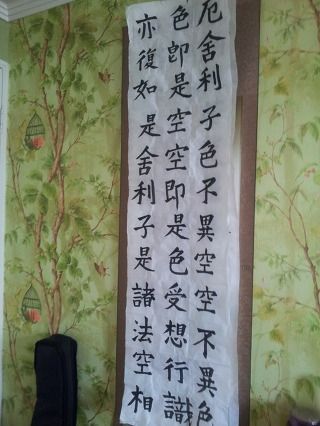 厄舍利子色不異空空不異色
色即是空空即是色受想行識
亦復如是舍利子是諸法空相